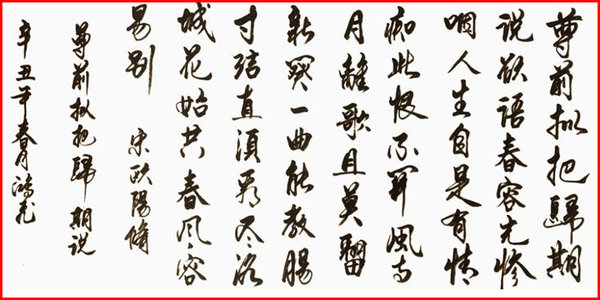 尊前拟把歸期
说欲语春容先惨
咽人生自是有情
痴此恨不関風与
月離歌且莫翻
新闋一曲能教腸
寸结直須看尽洛
城花始共春风容
易别 宋欧陽脩
尊前拟把歸期说
辛丑年春月